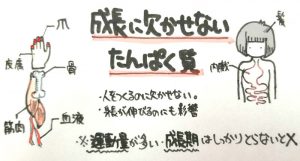 成長に欠かせない
たんぱく質
爪
皮膚
骨
筋肉
血液
髪
内臓
・人をつくるのに欠かせない。
・身長が伸びるのにも影響
※運動量が多い・成長期はしっかりとらないと×